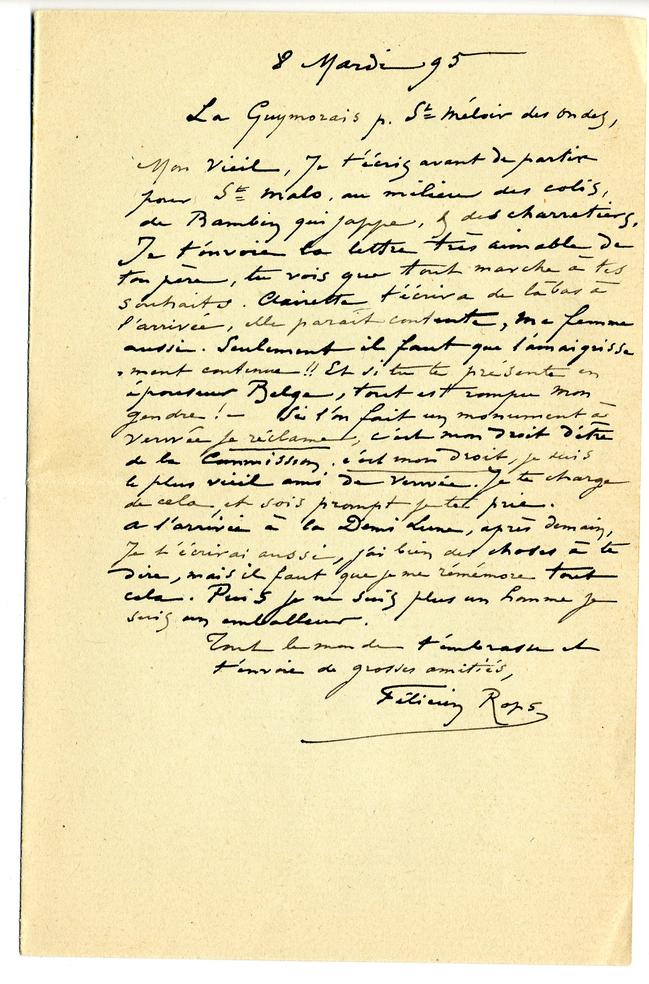 8 Mardi 95
La Guymorais p. St Méloir des Ondes,
Mon Vieil, Je t'écris avant de partir
pour St Malo, au milieu des colis,
de Bambin qui jappe, & des charretiers.
Je t'envoie la lettre très aimable de
ton père, tu vois que tout marche à tes
souhaits. Clairette t'écrira de là bas à
l'arrivée, elle paraît contente, ma femme
aussi. Seulement il faut que l'amaigrisse
-ment continue !! Et si tu te présente en
épouseur Belge, tout est rompu mon
gendre ! – Si l'on fait un monument à
Verwée je réclame, c'est mon droit d'être
de la Commission, c'est mon droit, je suis
le plus vieil ami de Verwée. Je te charge
de cela, et sois prompt je te prie.
A l'arrivée à la Demi Lune, après demain,
Je t'écrirai aussi, j'ai bien des choses à te
dire, mais il faut que je me rémémore tout
cela. Puis je ne suis plus un homme je
suis un emballeur.
Tout le monde t'embrasse et
t'envoie de grosses amitiés,
Félicien Rops